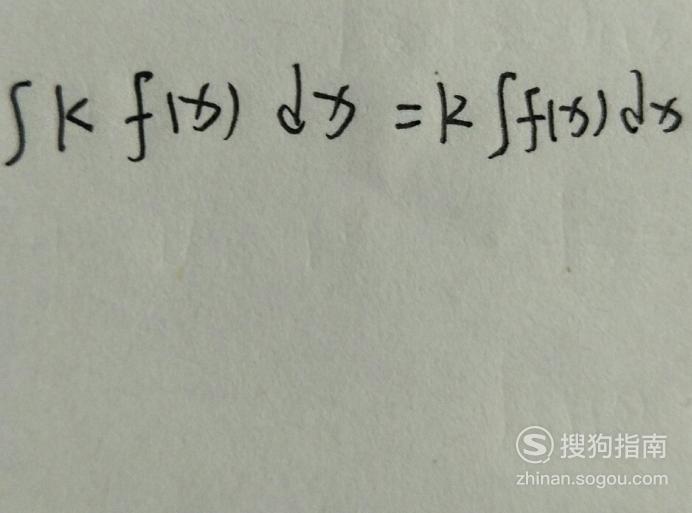 ∫k f(x) dx = k ∫f(x)dx
S 搜狗指南
zhinan.sogou.com